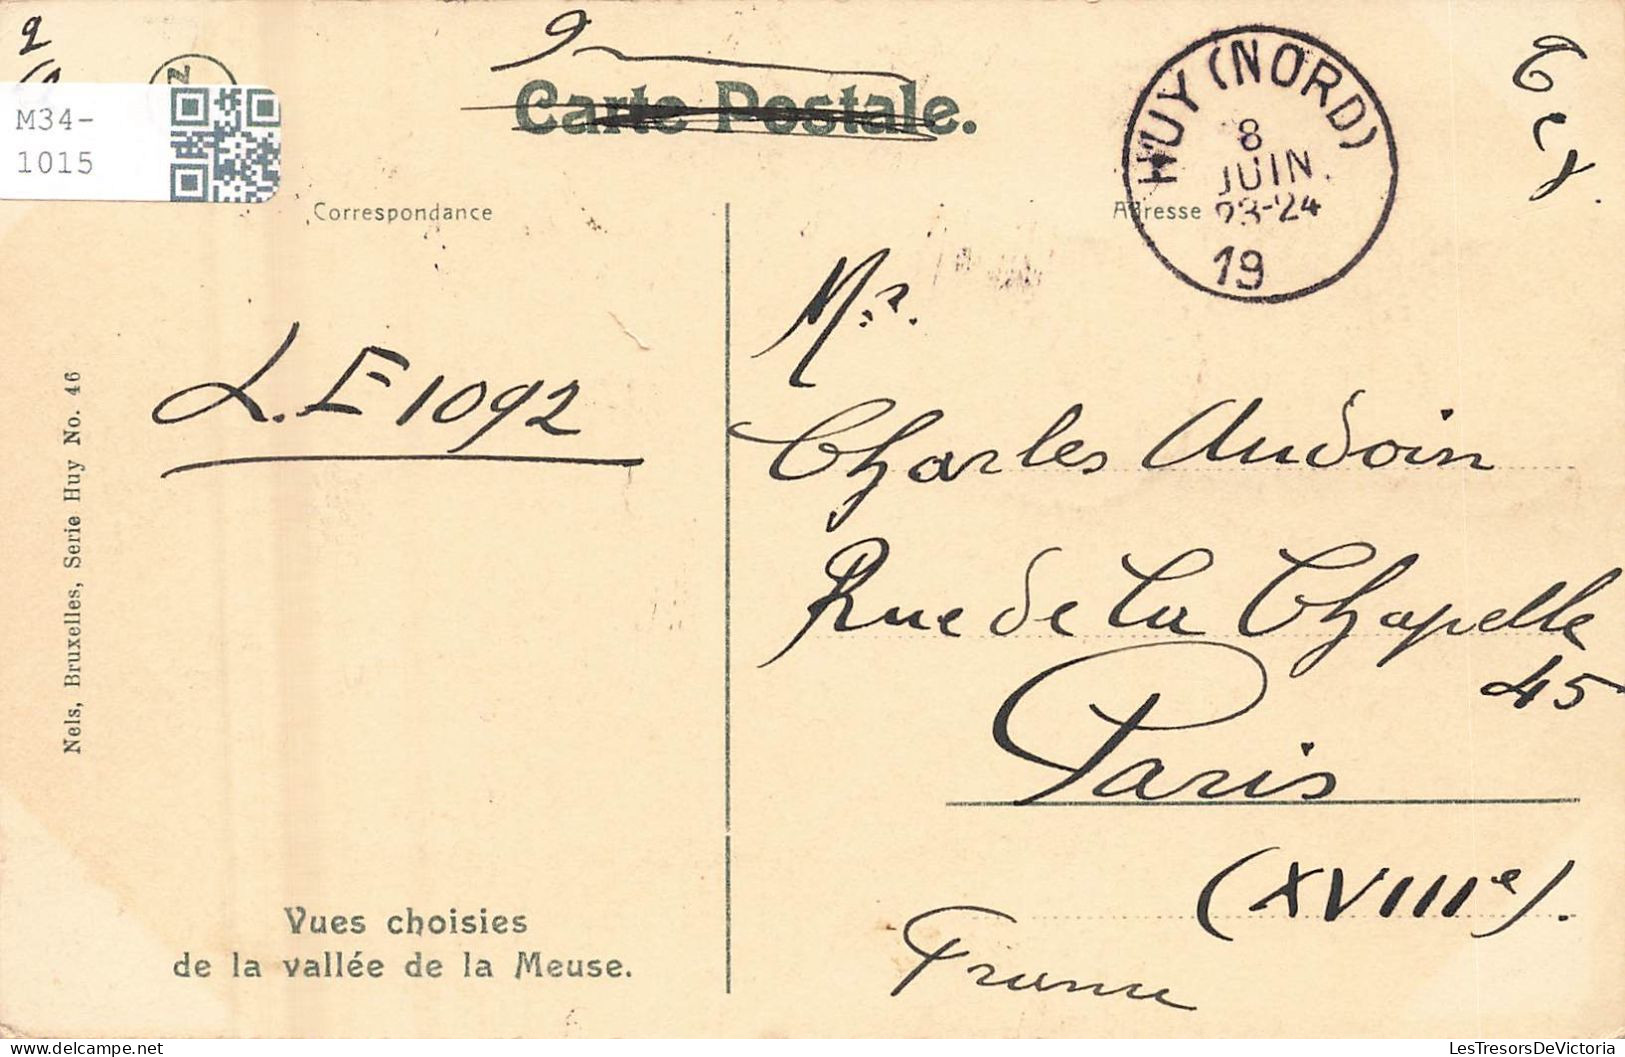 2
M34-
1015
Carte Postale.
HUY (NORD)
8
JUIN
23-24
19
Correspondance
Adresse
Mr.
L.E 1092
Charles Audoin
Rue de la Chapelle
45
Paris
(XVIIIe).
France
Nels, Bruxelles, Serie Huy No. 46
Vues choisies
de la vallée de la Meuse.
LesTresorsDeVictoria